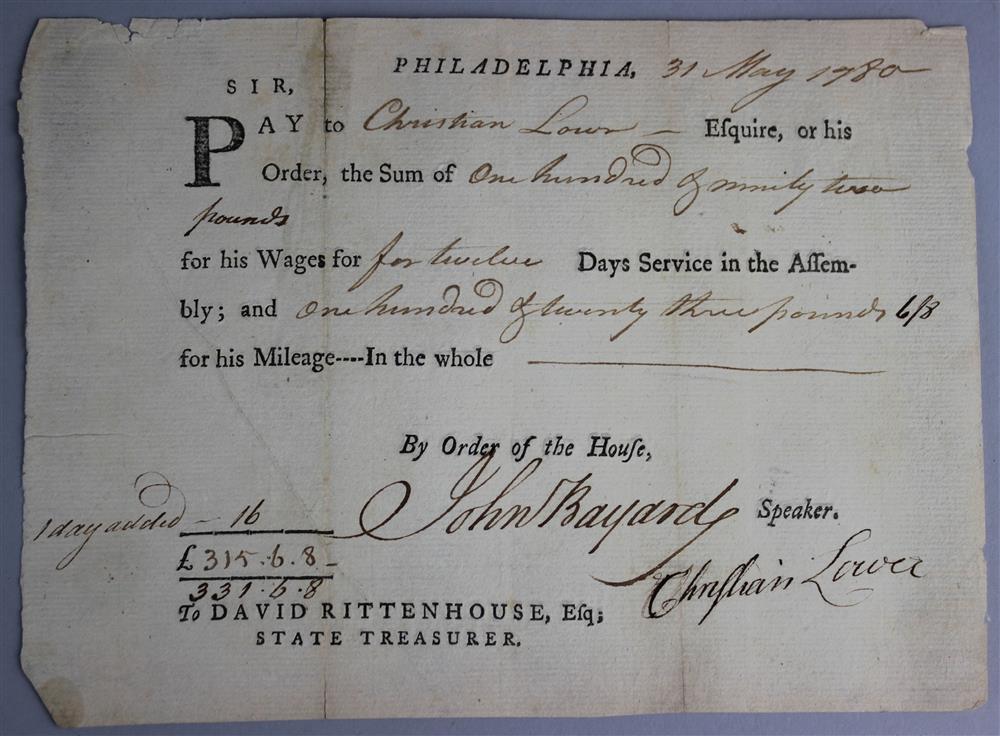 PHILADELPHIA, 31 May 1780
SIR,
PAY to Christian Lowr — Eſquire, or his
Order, the Sum of One hundred & ninity two
pounds
for his Wages for for twelve Days Service in the Aſſem-
bly; and One hundred & twenty three pounds 6/8
for his Mileage----In the whole
By Order of the Houſe,
John Bayard Speaker.
1 day added — 16
£ 315.6.8
Christian Lower
331.6.8
To DAVID RITTENHOUSE, Eſq;
STATE TREASURER.